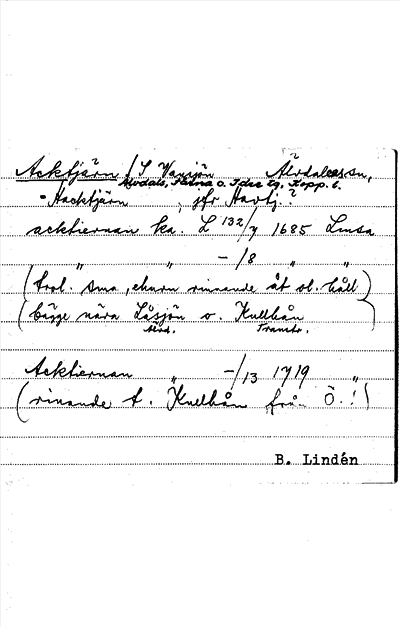 Acktjärn / S Vansjön Älvdalens sn,
Älvdals, Särna o. Idre tg, Kopp. l.
= Hacktjärn , jfr Havtj.?
acktiernan ka. L 132/7 1685 Lmsa
" " -/8 " "
(trol. sma , ehuru rinnande åt ol. håll)
(bägge nära Låsjön o. Kullbån)
Älvd. Transtr.
Acktiernan " -/13 1719 "
(rinande t. Kullbån från Ö.!)
B. Lindén